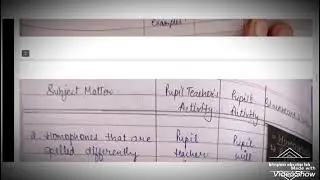 Examples
Subject Matter
Pupil Teacher's
Activity
Pupil
Activity
2. Homophones that are
spelled differently
Pupil
teacher
Pupil
will
Made with
VideoShow